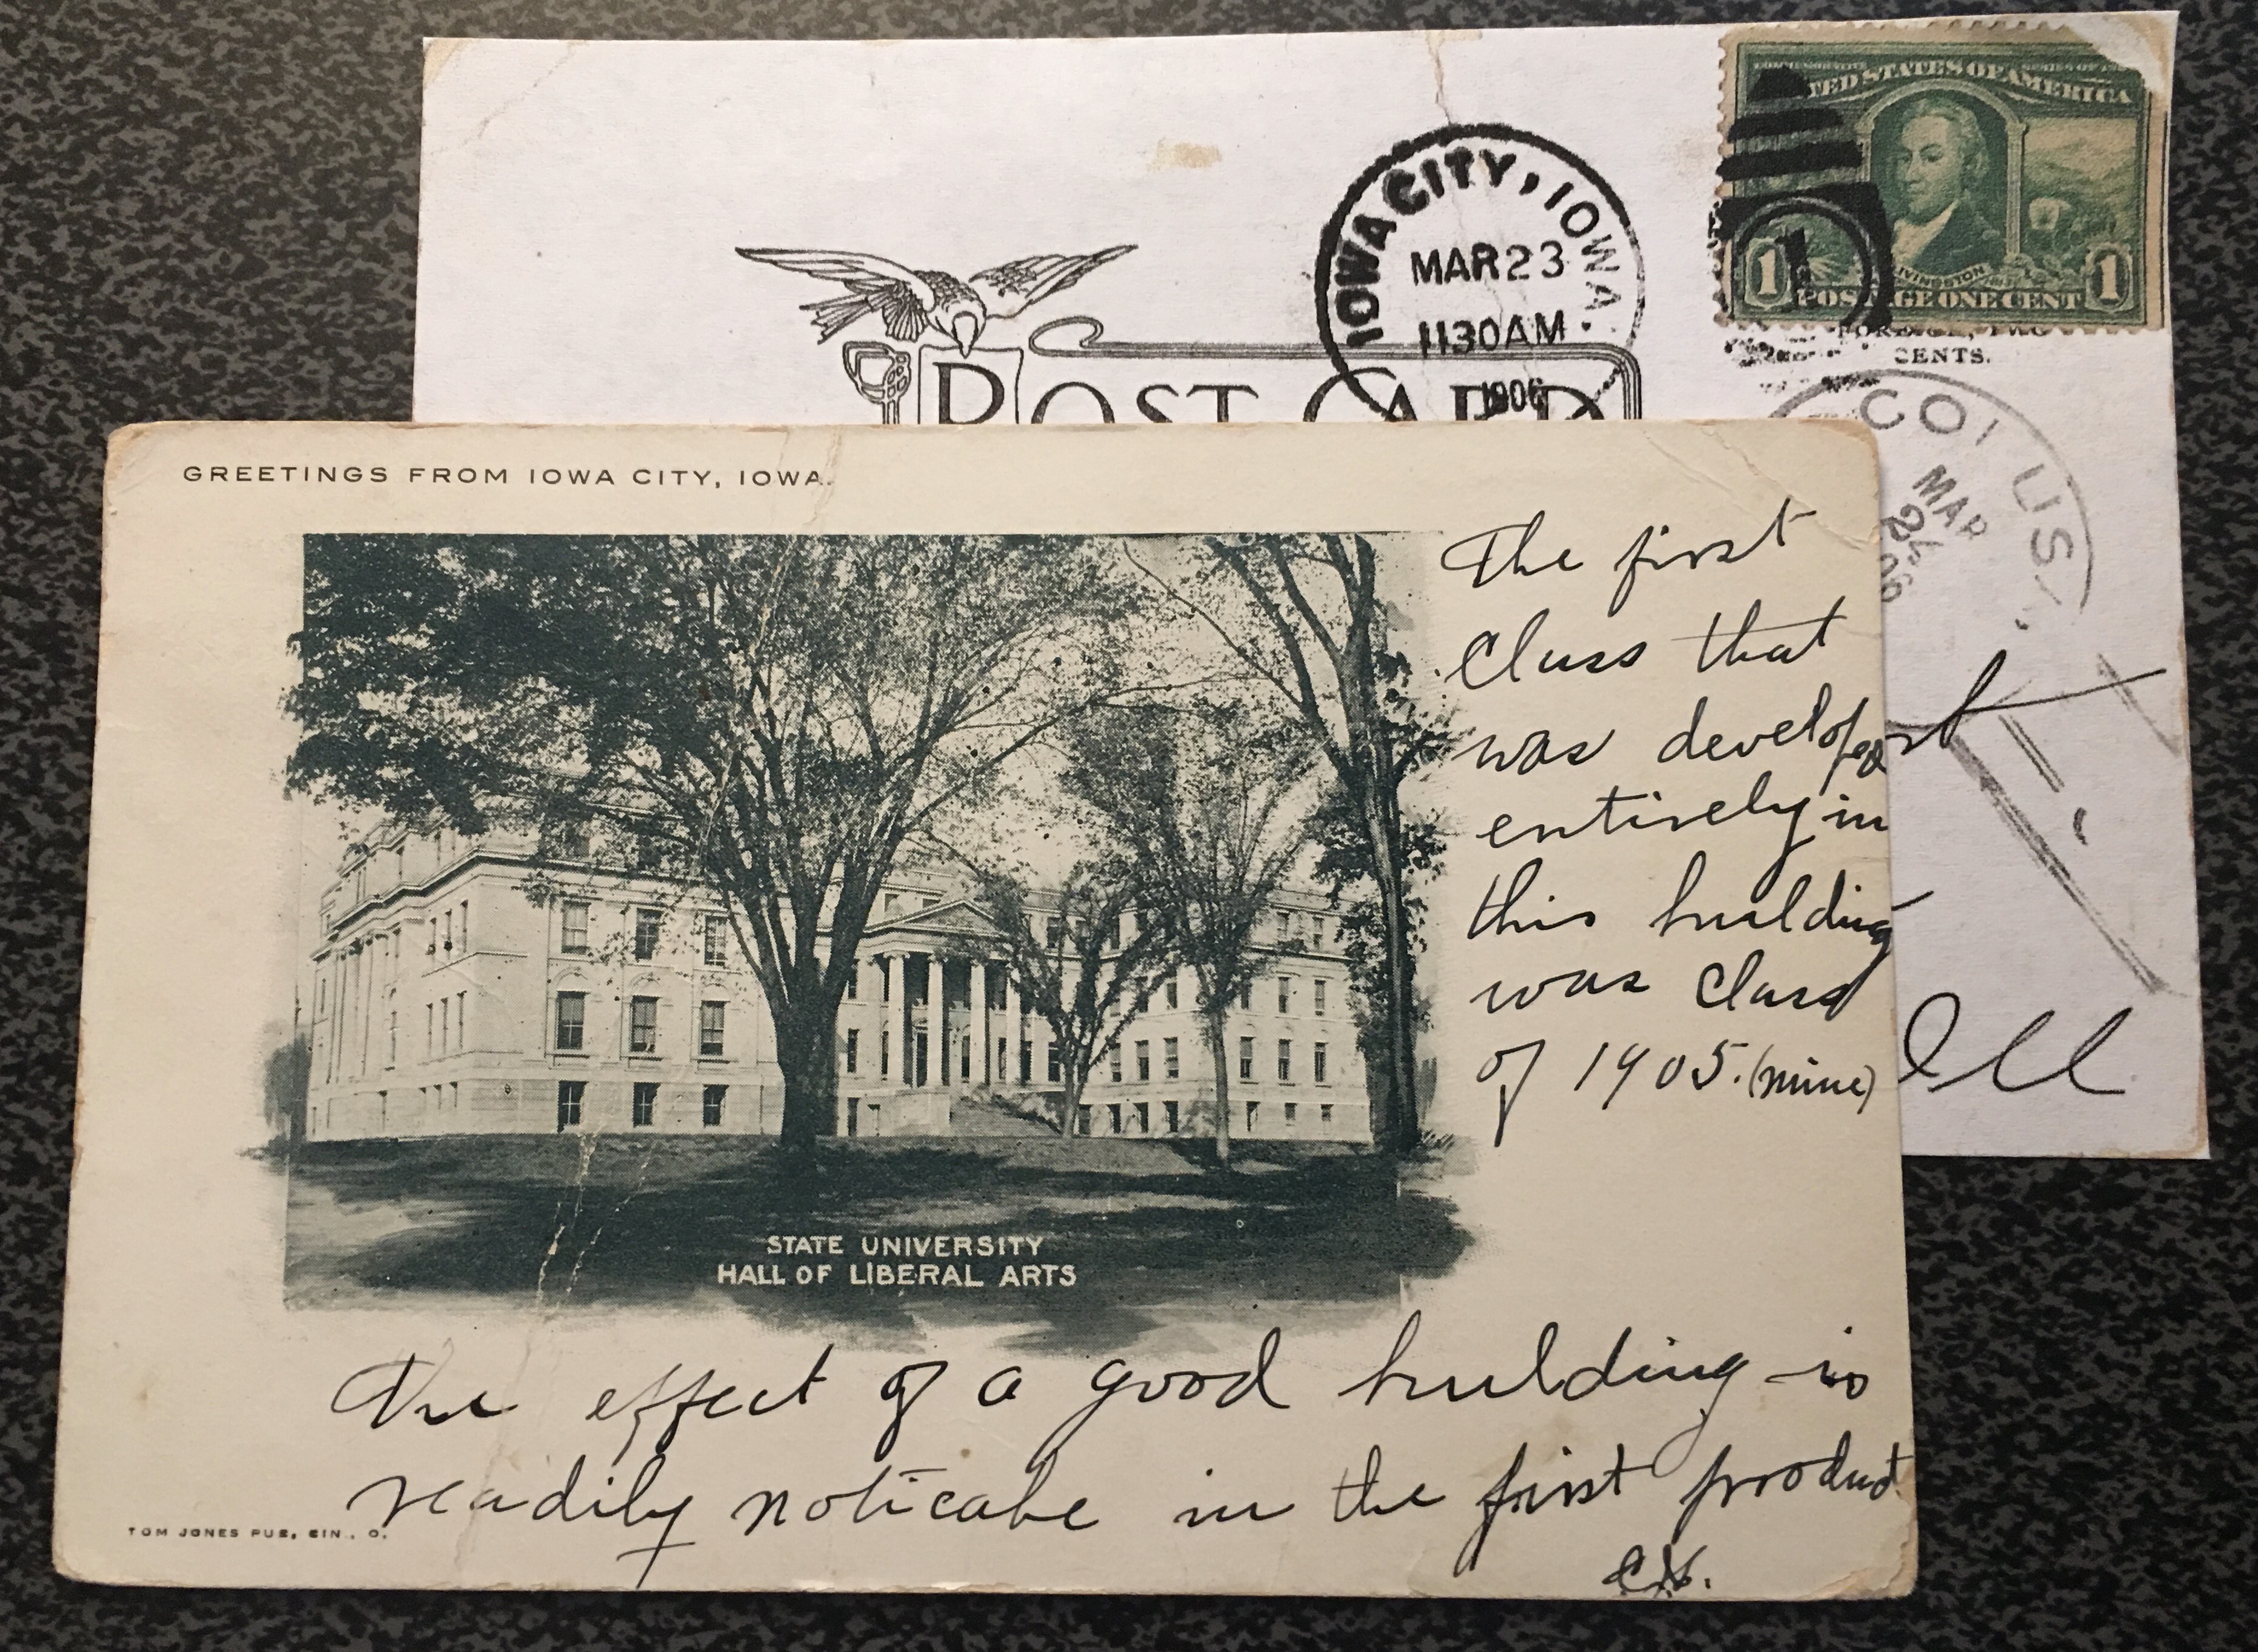 UNITED STATES OF AMERICA
1 POSTAGE ONE CENT 1
CENTS.
IOWA CITY, IOWA.
MAR 23
1130AM
1906
POST CARD
MAR
24
Ill
GREETINGS FROM IOWA CITY, IOWA.
The first
Class that
was developed
entirely in
this building
was Class
of 1905. (mine)
STATE UNIVERSITY
HALL OF LIBERAL ARTS
The effect of a good building is
readily noticabe in the first product
C.H.
TOM JONES PUB, CIN., O.